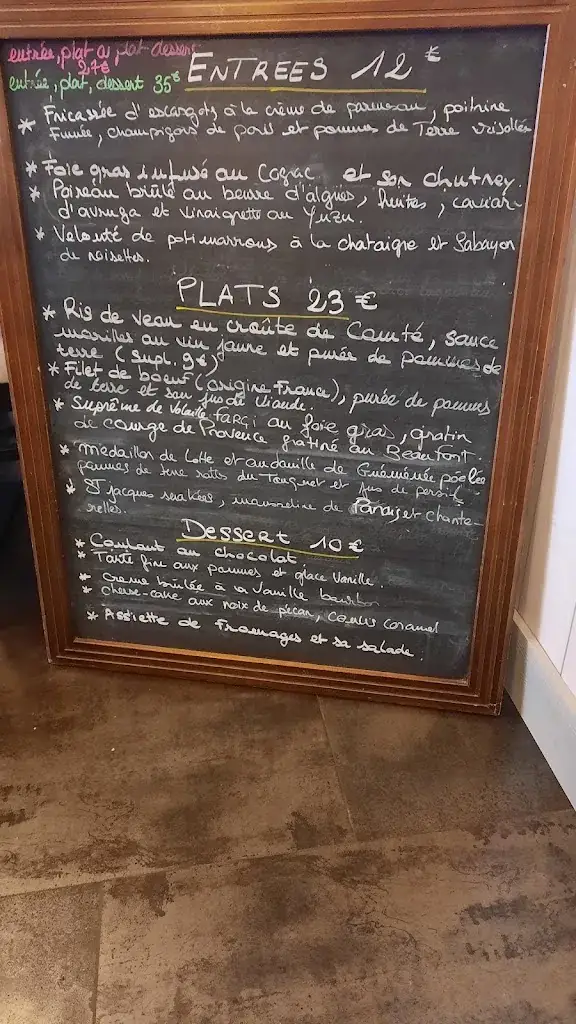 entrée, plat ou plat dessert
27€
entrée, plat, dessert 35€
ENTREES 12 €
* Fricassée d'escargots à la crème de parmesan, poitrine
fumée, champignons de paris et pommes de Terre
* Foie gras infusé au Cognac et son chutney.
* Poireau brûlé au beurre d'algues, huîtres, caviar
d'avruga et vinaigrette au Yuzu.
* Velouté de potimarrons à la chataigne et Sabayon
de noisettes.
PLATS 23 €
* Ris de veau en croûte de Comté, sauce
morilles au vin jaune et purée de pommes de
terre (supl. 9€)
* Filet de boeuf (origine France), purée de pommes
de terre et son jus de viande.
* Suprême de Volaille farçi au foie gras, gratin
de courge de Provence gratiné au Beaufort.
* Médaillon de Lotte et andouille de Guémenée poêlée
pommes de terre rattes du Touquet et jus de persil
* St jacques snackées, mousseline de Panais et chante-
relles.
Dessert 10 €
* Coulant au chocolat
* Tarte fine aux pommes et glace Vanille.
* Creme brûlée à la Vanille bourbon
* cheese-cake aux noix de pécan, coulis caramel
* Assiette de Fromages et sa salade.